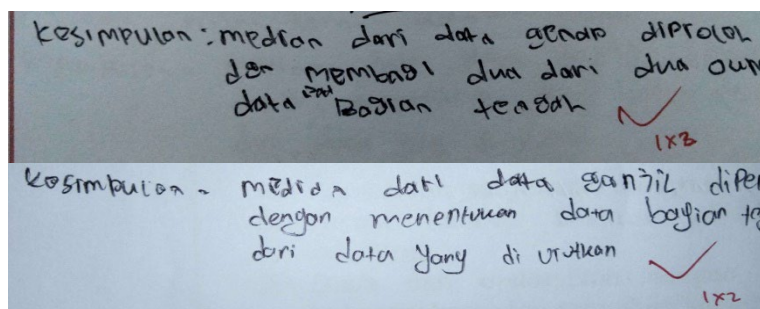 Kesimpulan : median dari data genap diproleh
den membagi dua dari dua
data Bagian tengah
1x3
Kesimpulan - median dari data ganjil
dengan menentukan data bagian
dari data yang di urutkan
1x2